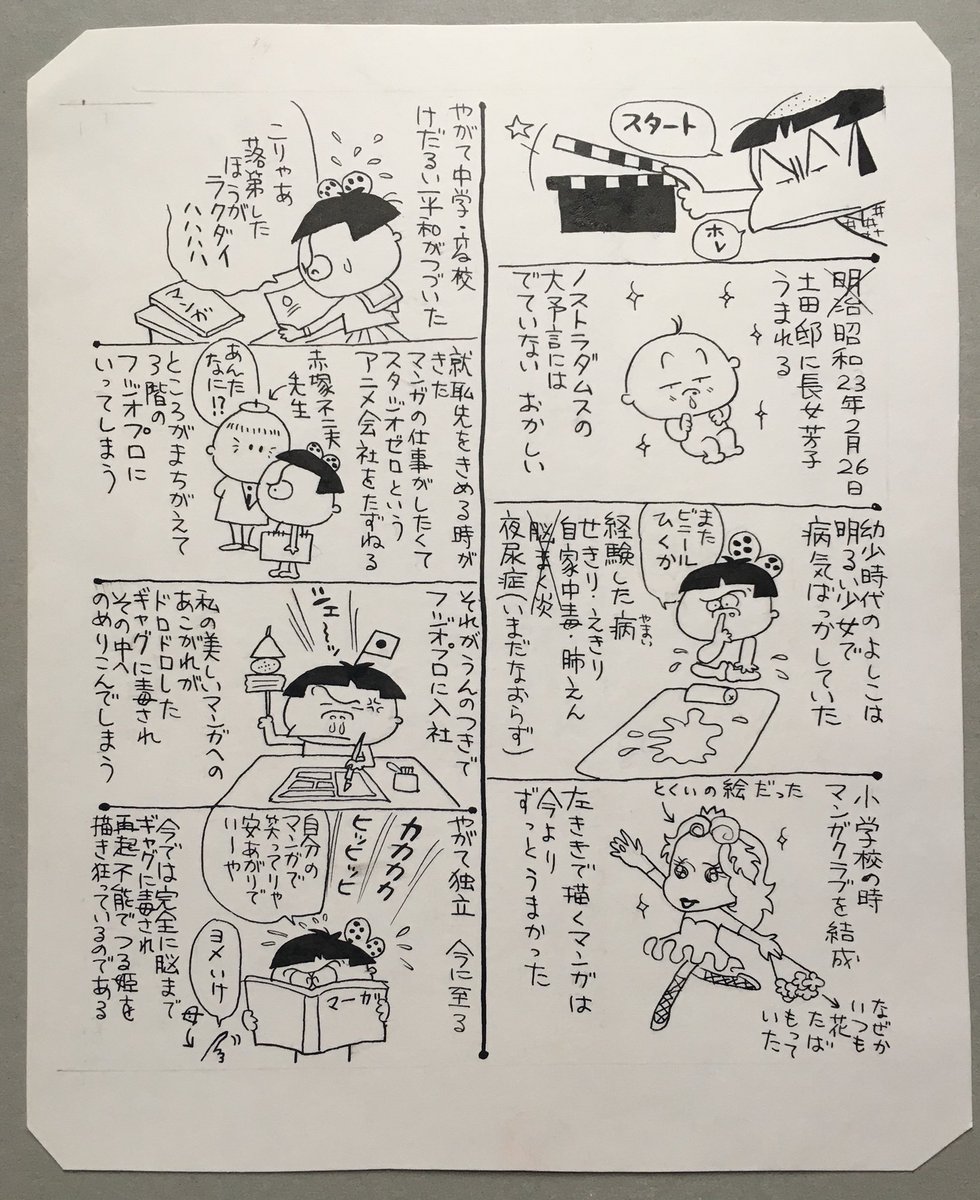 スタート
ホレ
明治昭和23年2月26日
土田邸に長女芳子
うまれる
ノストラダムスの
大予言には
でていない おかしい
幼少時代のよしこは
明るい少女で
病気ばっかしていた
また
ビニール
ひくか
経験した病
やまい
せきり・えきり
自家中毒・肺えん
脳まく炎
夜尿症(いまだなおらず)
小学校の時
マンガクラブを結成
とくいの絵だった
なぜか
いつも
花
たば
もって
いた
左ききで描くマンガは
今より
ずっとうまかった
やがて中学・高校
けだるい平和がつづいた
こりゃあ
落第した
ほうが
ラクダイ
ハハハハ
マンガ
就職先をきめる時が
きた
マンガの仕事がしたくて
スタジオゼロという
アニメ会社をたずねる
赤塚不二夫
先生
あんた
なに!?
ところがまちがえて
3階の
フジオプロに
いってしまう
それがうんのつきで
フジオプロに入社
ジェーッ
私の美しいマンガへの
あこがれが
ドロドロした
ギャグに毒され
その中へ
のめりこんでしまう
やがて独立 今に至る
カカカカ
ヒッヒッヒ
自分の
マンガで
笑ってりゃ
安あがりで
いーや
マーガ
ヨメいけ
母
今では完全に脳まで
ギャグに毒され
再起不能でつる姫を
描き狂っているのである